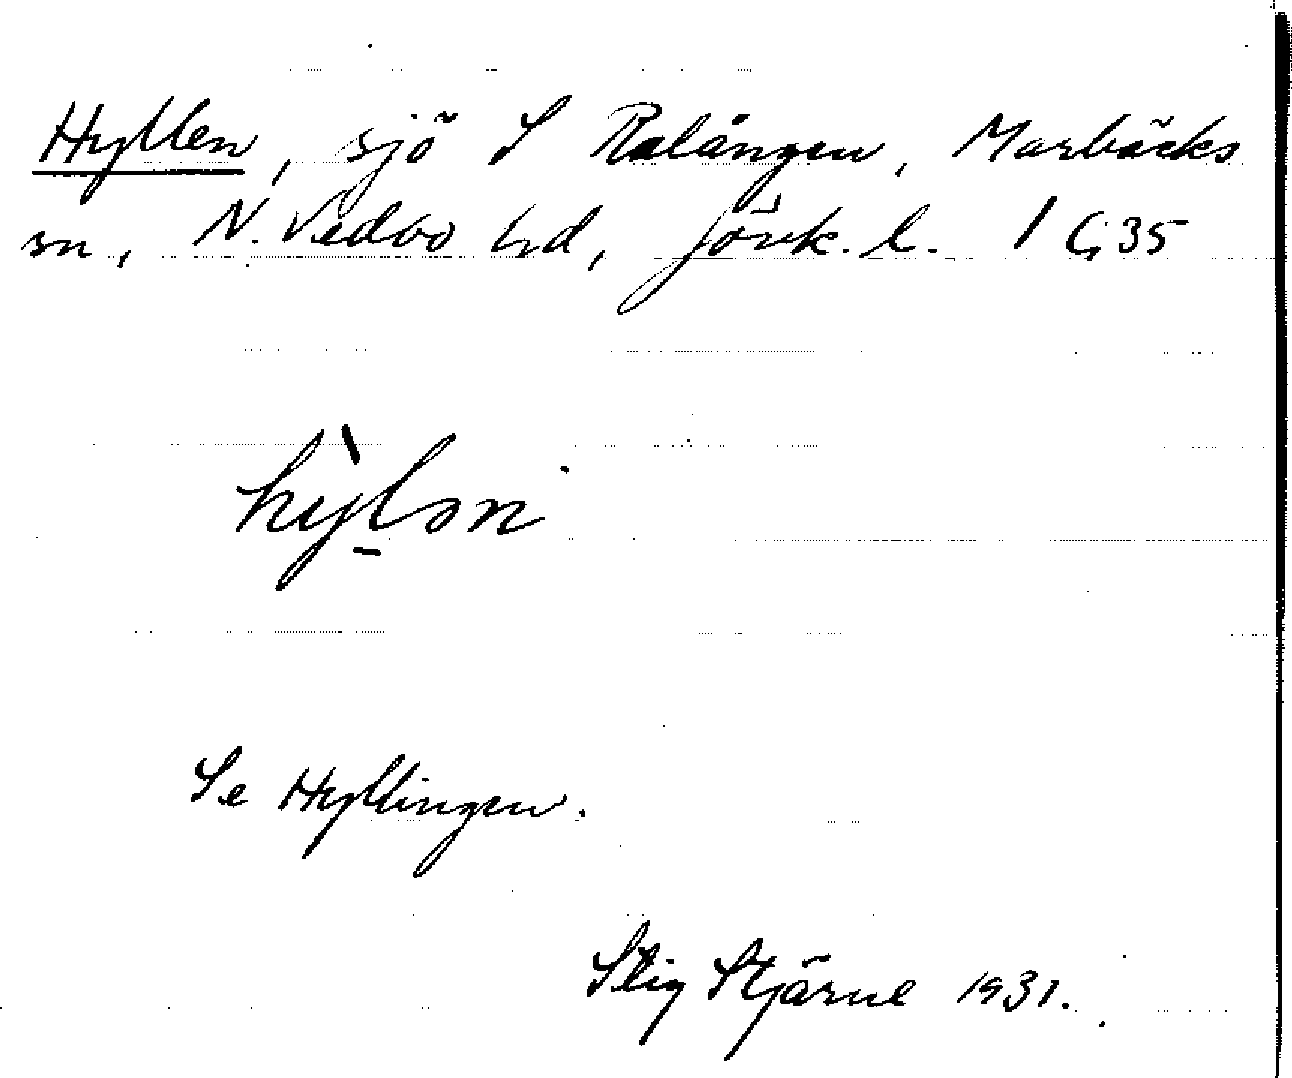 Hyllen, sjö S Ralången, Marbäcks
sn, N. Vedbo hd, Jönk. l. / G 35
hỳl̠ən
Se Hyllingen.
Stig Stjärne 1931.